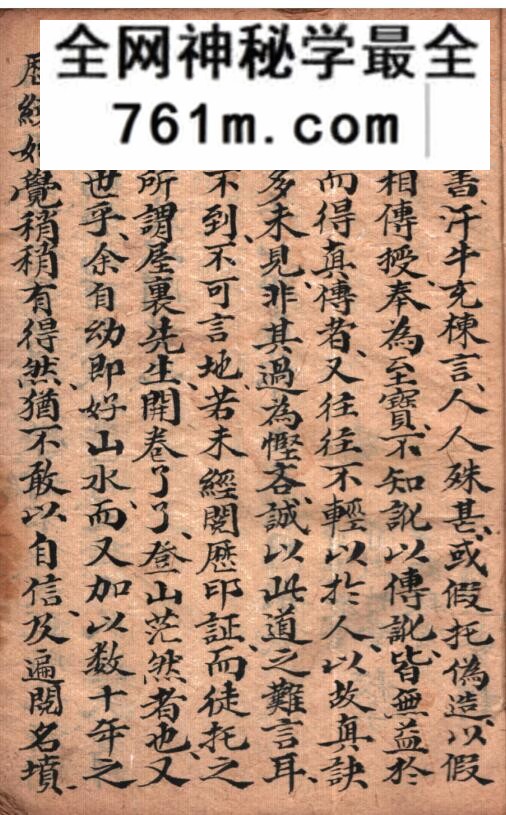 全网神秘学最全
761m.com
書、汗牛充棟言、人人殊甚、或假托偽造、以假
相傳授、奉為至寶、不知訛以傳訛、皆無益於
而得真傳者、又往往不輕以於人、以故真訣
多未見、非其過為慳吝、誠以此道之難言耳、
不到、不可言地、若未經閱歷印証、而徒托之
所謂屋裏先生、開卷了了、登山茫然者也、又
世乎、余自幼即好山水、而又加以数十年之
覺稍稍有得、然猶不敢以自信、及遍閱名墳、